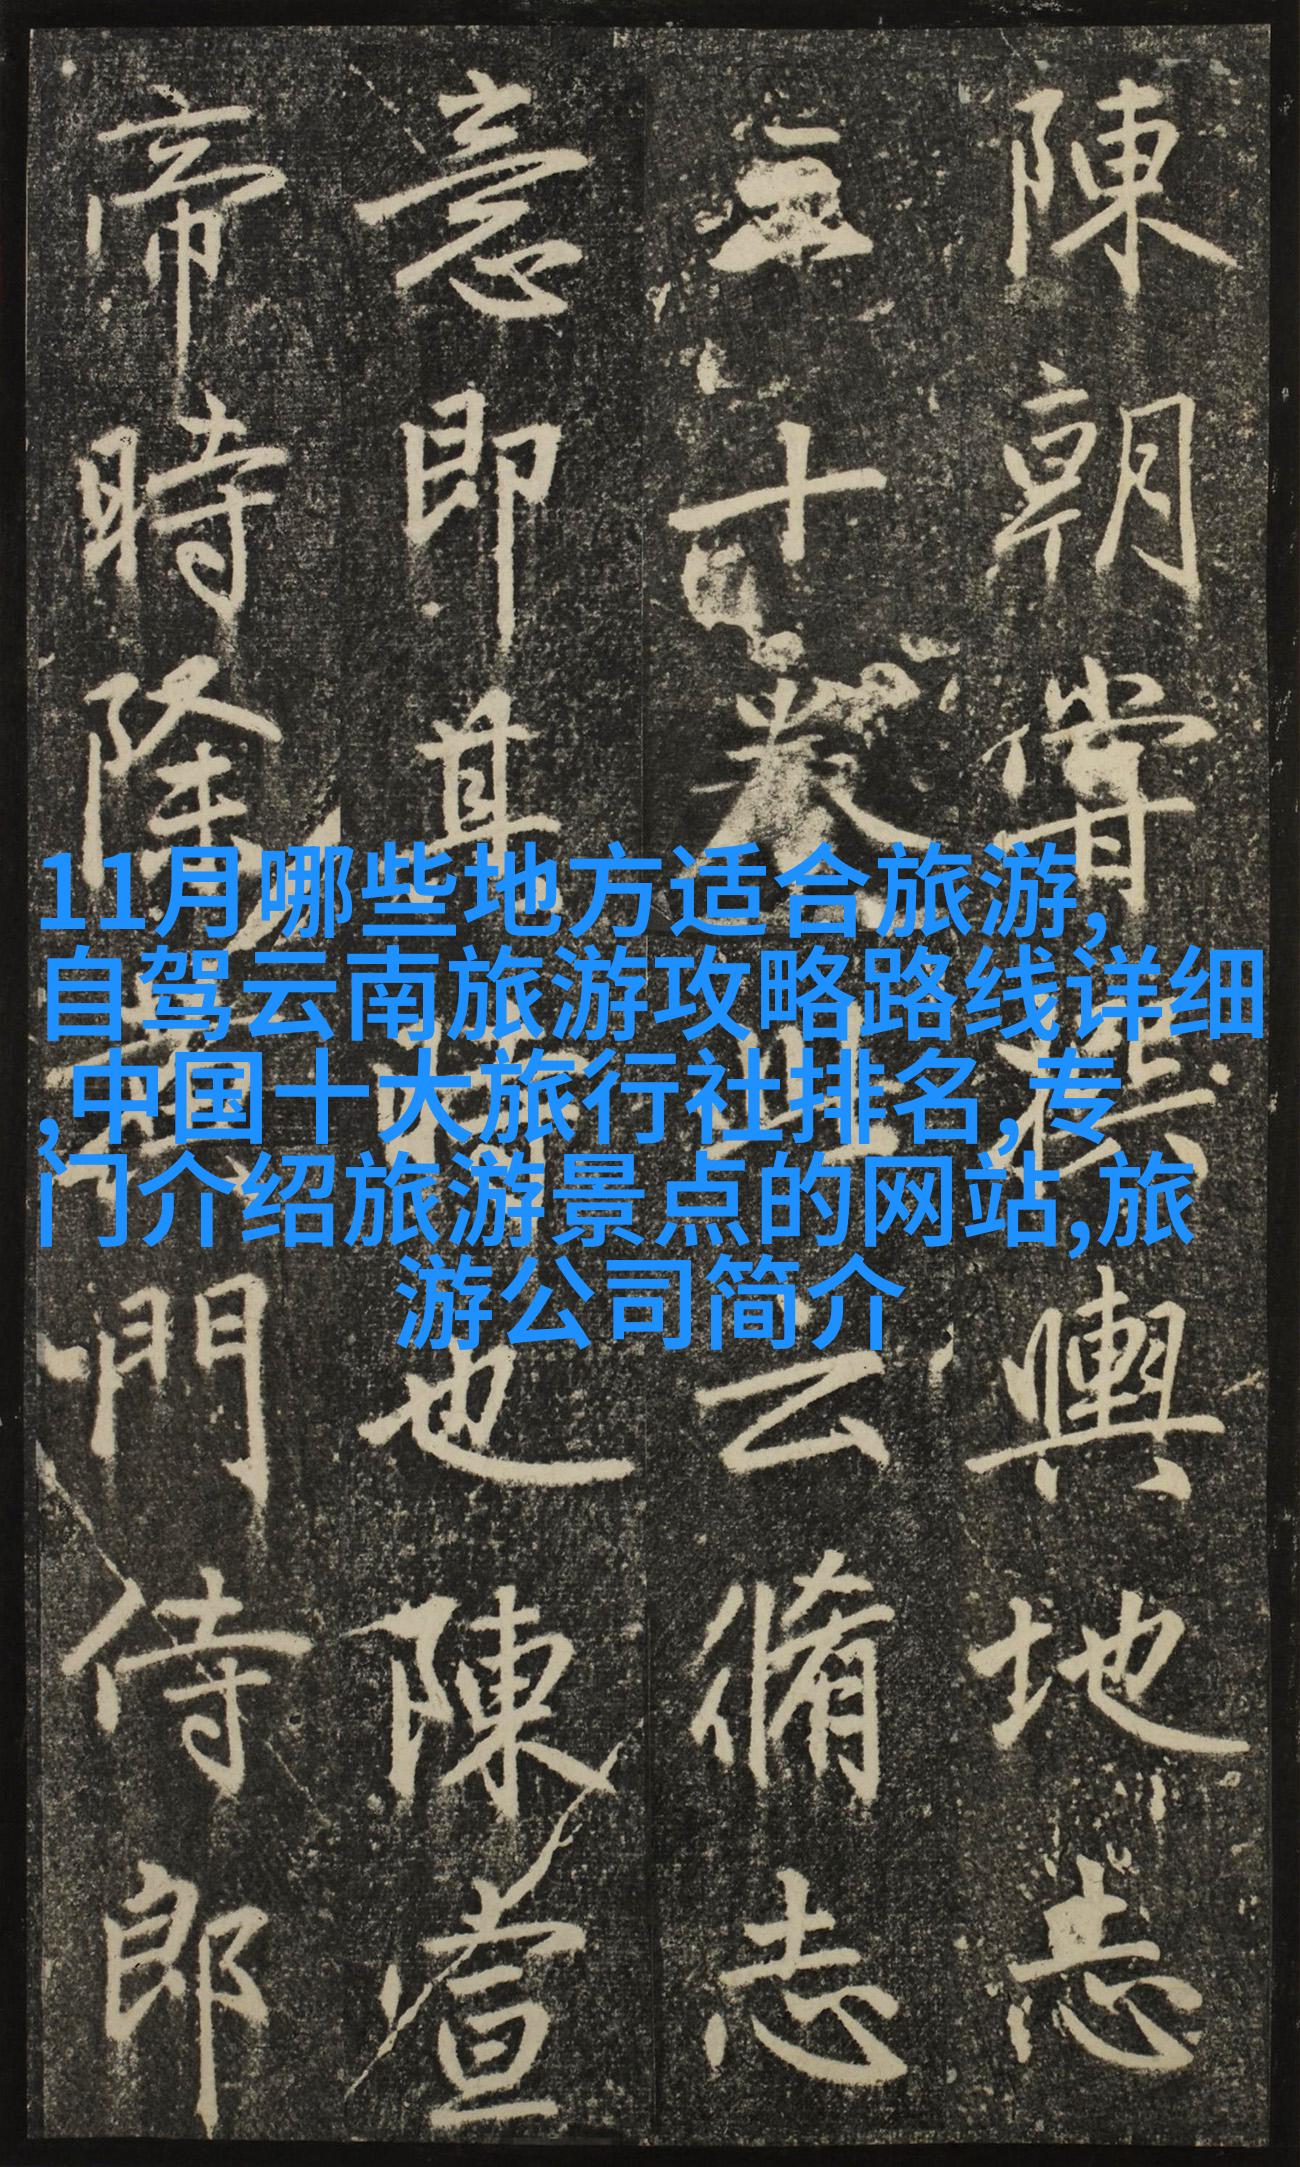 11月哪些地方适合旅游,
自驾云南旅游攻略路线详细
,中国十大旅行社排名,专
门介绍旅游景点的网站,旅
游公司简介
陳朝嘗撰輿地志
三十卷此云脩志
意即其也陳宣
帝時除黃門侍郎